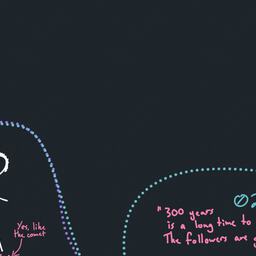 Yes, like
the comet
"300 years
is a long time to
The followers are